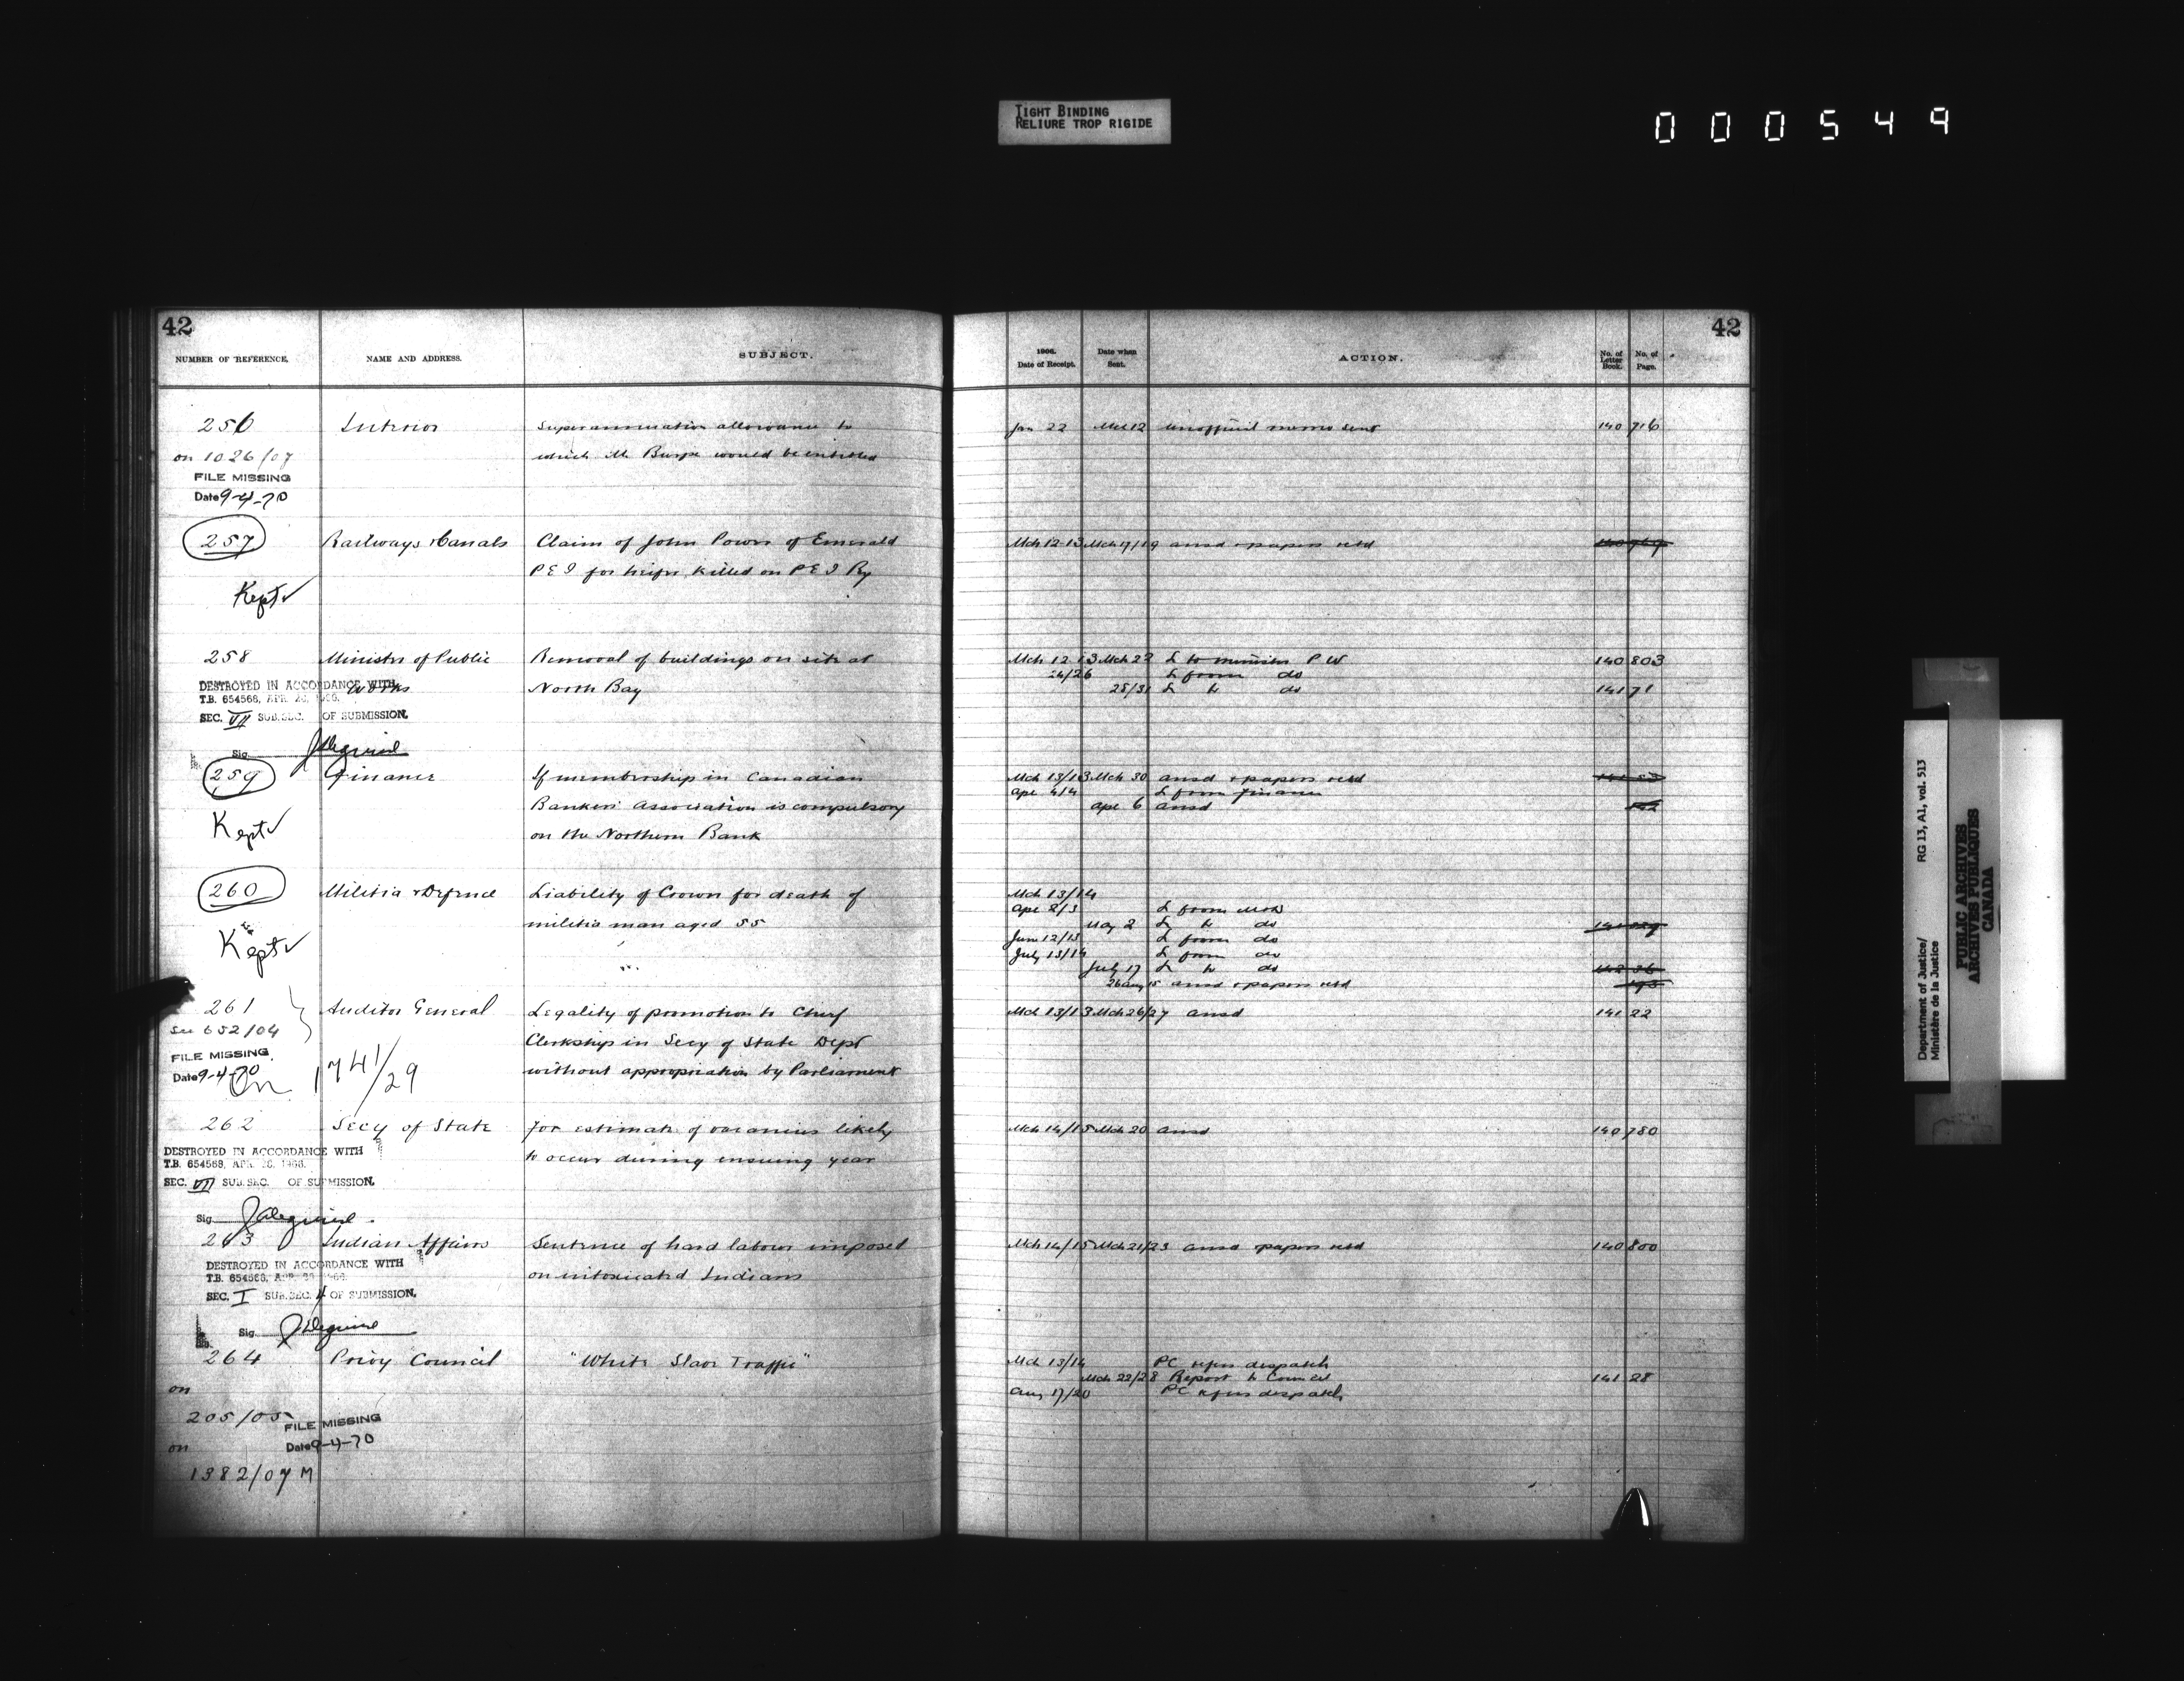 TIGHT BINDING
RELIURE TROP RIGIDE
000549
42
NUMBER OF REFERENCE.
NAME AND ADDRESS.
SUBJECT.
256
Interior
Superannuation allowance to
on 1026/07
which Mr Burpe would be entitled
FILE MISSING
Date 9-4-70
257
Railways & Canals
Claim of John Power of Emerald
P E I for heifer killed on P E I Ry
Kept ✓
258
Minister of Public
Removal of buildings on site at
Works
North Bay
DESTROYED IN ACCORDANCE WITH
T.B. 654568, APR. 28, 1966.
SEC. VII SUB.SEC. OF SUBMISSION.
Sig.
259
Finance
If membership in Canadian
Bankers' Association is compulsory
Kept ✓
on the Northern Bank
260
Militia & Defence
Liability of Crown for death of
militia man aged 55
Kept ✓
261
Auditor General
Legality of promotion to Chief
See 652/04
Clerkship in Secy of State Dept
FILE MISSING
without appropriation by Parliament
Date 9-4-70
On 1741/29
262
Secy of State
for estimate of vacancies likely
to occur during ensuing year
DESTROYED IN ACCORDANCE WITH
T.B. 654568, APR. 28, 1966.
SEC. VII SUB.SEC. OF SUBMISSION.
Sig.
263
Indian Affairs
Sentence of hard labour imposed
on intoxicated Indians
DESTROYED IN ACCORDANCE WITH
T.B. 654568, APR. 28, 1966.
SEC. I SUB.SEC. 4 OF SUBMISSION.
Sig.
264
Privy Council
"White Slave Traffic"
on
205/05
FILE MISSING
Date 9-4-70
on
1382/07 M
42
1906.
Date of Receipt.
Date when
Sent.
ACTION.
No. of
Letter
Book.
No. of
Page.
Jan 22 Mch 12 unofficial memo sent 140 716
Mch 12-13 Mch 17/19 ansd & papers retd
Mch 12 13 Mch 22 L to minister P W 140 803
24/26 L from do
28/31 L to do 141 71
Mch 13/13 Mch 30 ansd & papers retd
Apr 4/4 L from Finance
Apr 6 ansd
Mch 13/14
Apr 2/3 L from
May 2 L to do
June 12/13 L from do
July 13/14 L from do
July 17 L to do
ansd & papers retd
Mch 13/13 Mch 26/27 ansd 141 22
Mch 14/15 Mch 20 ansd 140 780
Mch 14/15 Mch 21/23 ansd & papers retd 140 800
Mch 13/14 PC refers despatch
Mch 22/28 Report to Council 141 28
Aug 17/20 PC refers despatch
Department of Justice/ RG 13, A1, vol. 513
Ministère de la Justice
PUBLIC ARCHIVES
ARCHIVES PUBLIQUES
CANADA